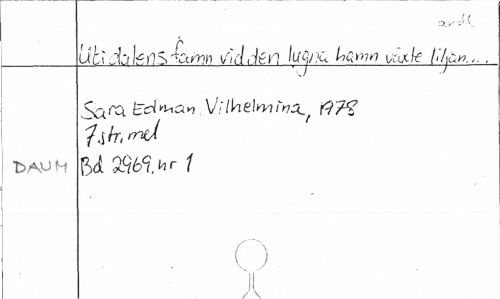 andl
Uti dalens famn vid den lugna hamn växte liljan....
Sara Edman Vilhelmina, 1978
7 str, mel
DAUM Bd 2969, nr 1